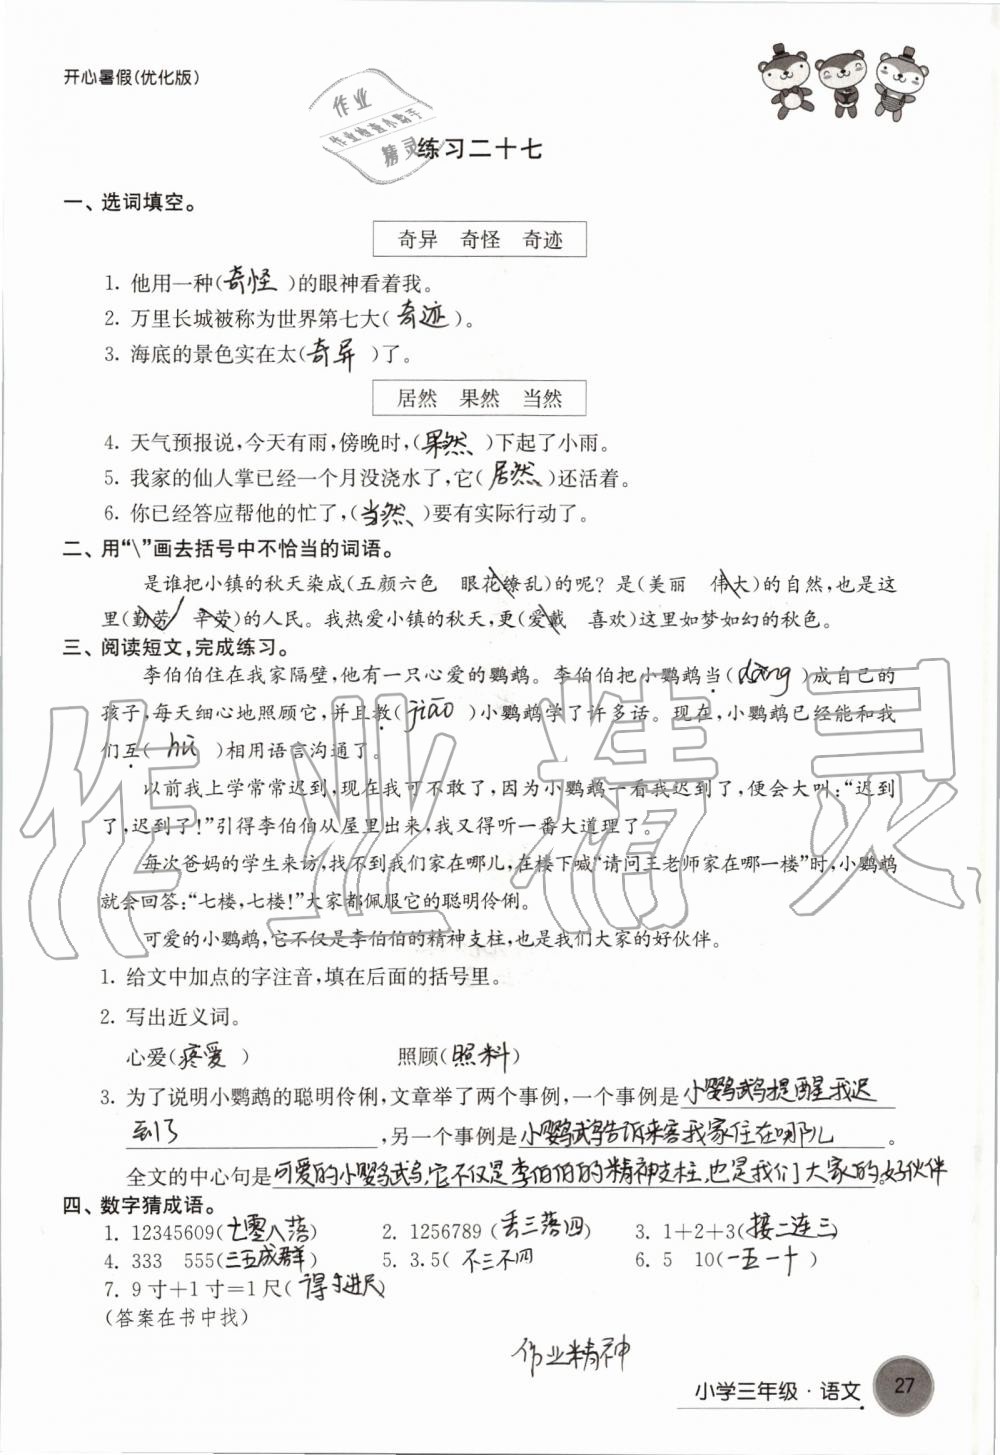 开心暑假(优化版)
作业
作业检查小助手
精灵
练习二十七
一、选词填空。
奇异 奇怪 奇迹
1. 他用一种(奇怪)的眼神看着我。
2. 万里长城被称为世界第七大(奇迹)。
3. 海底的景色实在太(奇异)了。
居然 果然 当然
4. 天气预报说,今天有雨,傍晚时,(果然)下起了小雨。
5. 我家的仙人掌已经一个月没浇水了,它(居然)还活着。
6. 你已经答应帮他的忙了,(当然)要有实际行动了。
二、用“\”画去括号中不恰当的词语。
是谁把小镇的秋天染成(五颜六色 眼花缭乱)的呢?是(美丽 伟大)的自然,也是这
里(勤劳 辛劳)的人民。我热爱小镇的秋天,更(爱戴 喜欢)这里如梦如幻的秋色。
三、阅读短文,完成练习。
李伯伯住在我家隔壁,他有一只心爱的鹦鹉。李伯伯把小鹦鹉当(dàng)成自己的
孩子,每天细心地照顾它,并且教(jiāo)小鹦鹉学了许多话。现在,小鹦鹉已经能和我
们互(hù)相用语言沟通了。
以前我上学常常迟到,现在我可不敢了,因为小鹦鹉一看我迟到了,便会大叫:“迟到
了,迟到了!”引得李伯伯从屋里出来,我又得听一番大道理了。
每次爸妈的学生来访,找不到我们家在哪儿,在楼下喊“请问王老师家在哪一楼”时,小鹦鹉
就会回答:“七楼,七楼!”大家都佩服它的聪明伶俐。
可爱的小鹦鹉,它不仅是李伯伯的精神支柱,也是我们大家的好伙伴。
1. 给文中加点的字注音,填在后面的括号里。
2. 写出近义词。
心爱(疼爱) 照顾(照料)
3. 为了说明小鹦鹉的聪明伶俐,文章举了两个事例,一个事例是小鹦鹉提醒我迟
到了,另一个事例是小鹦鹉告诉来客我家住在哪儿。
全文的中心句是可爱的小鹦鹉,它不仅是李伯伯的精神支柱,也是我们大家的好伙伴。
四、数字猜成语。
1. 12345609(七零八落) 2. 1256789(丢三落四) 3. 1+2+3(接二连三)
4. 333 555(三五成群) 5. 3.5(不三不四) 6. 5 10(一五一十)
7. 9寸+1寸=1尺(得寸进尺)
(答案在书中找)
作业精神
小学三年级·语文 27
作业精灵